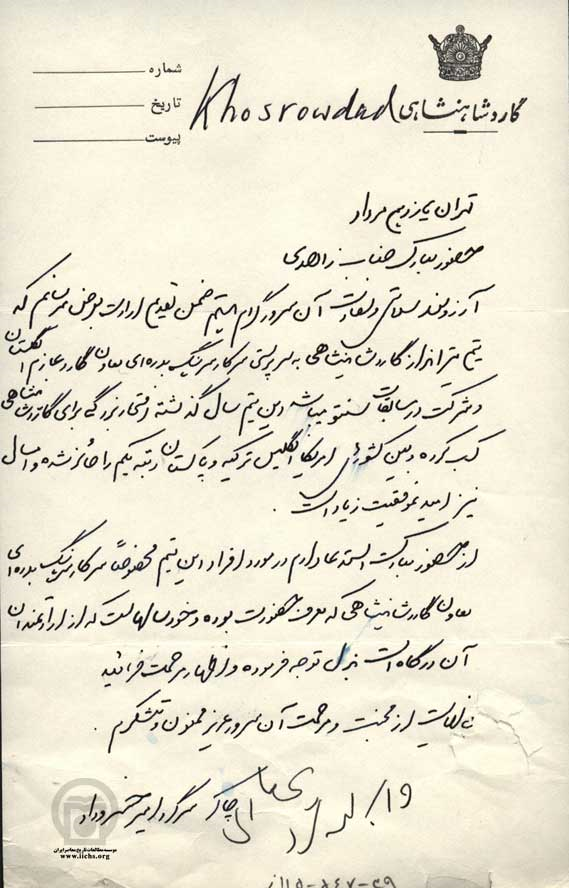 شماره
تاریخ
پیوست
گارد شاهنشاهی
Khosrowdad
تهران یازدهم مرداد
حضور مبارک جناب زاهدی
آرزومند سلامتی و سعادت آن سرور گرام هستم ضمن تقدیم ارادت بعرض میرسانم که
تیم تیرانداز گارد شاهنشاهی به سرپرستی سرکار سرهنگ بدره‌ای معاون گارد عازم انگلستان
و شرکت در مسابقات سنتو میباشد این تیم سال گذشته افتخار بزرگی برای گارد شاهنشاهی
کسب کرده و بین کشورهای امریکا انگلیس ترکیه و پاکستان رتبه یکم را حائز شده و امسال
نیز امید موفقیت زیاد است.
از حضور مبارکت استدعا دارم در مورد افراد این تیم مخصوصاً سرکار سرهنگ بدره‌ای
معاون گارد شاهنشاهی که معرف حضورت بوده و خود سالهاست که از ارادتمندان
آن درگاه است بذل توجه فرموده و اظهار مرحمت فرمائید
نهایت از محبت و مرحمت آن سرور عزیز ممنون و متشکرم.
چاکر سرگرد امیر خسروداد
موسسه مطالعات تاریخ معاصر ایران
www.iichs.org